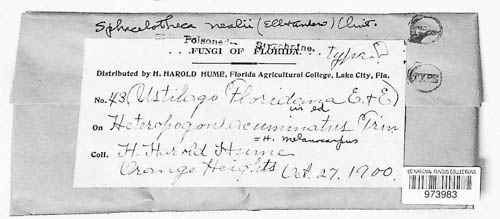 Sphacelotheca nealii (Ell & Anders) Clint.
Poisoned
Strychnine.
FUNGI OF FLORIDA.
type
Distributed by H. HAROLD HUME, Florida Agricultural College, Lake City, Fla.
No. 43 (Ustilago Floridana E. & E)
in ed
On Heteropogon acuminatus Trin
= H. melanocarpus
Coll. H. Harold Hume
Orange Heights Oct. 27, 1900.
TYPE
US NATIONAL FUNGUS COLLECTIONS
973983